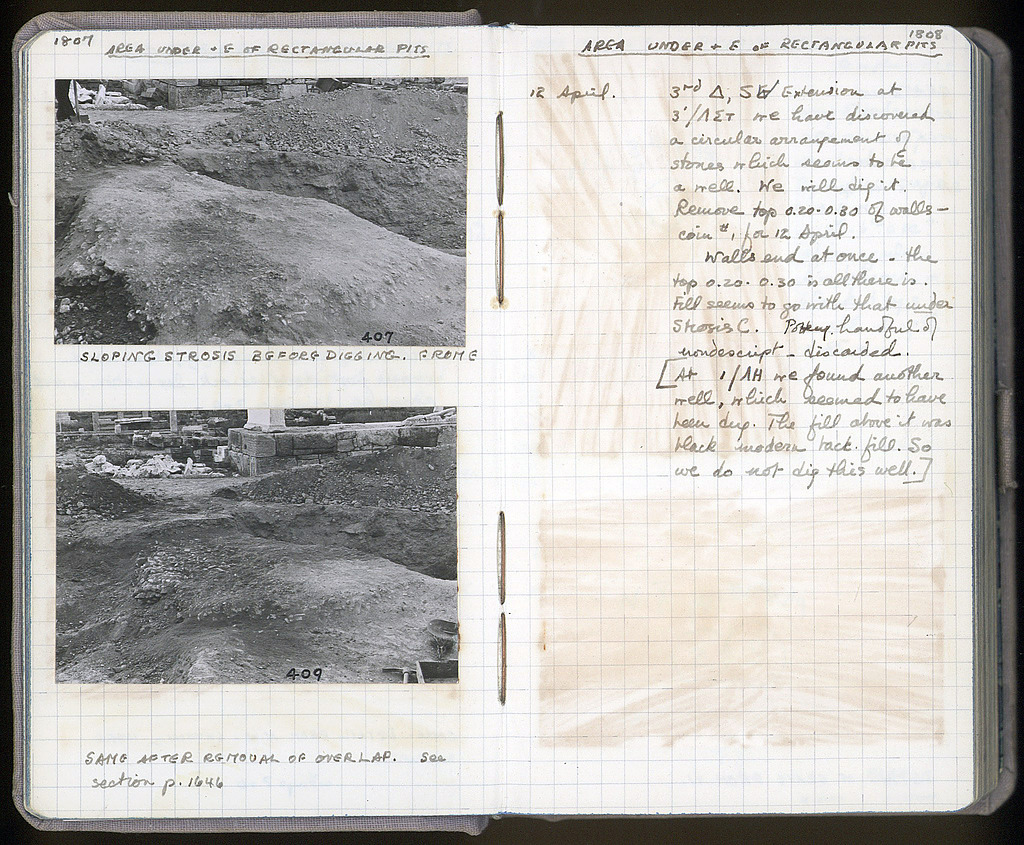 1807
AREA UNDER + E OF RECTANGULAR PITS
407
SLOPING STROSIS BEFORE DIGGING. FROM E
409
SAME AFTER REMOVAL OF OVERLAP. See
section p. 1646
1808
AREA UNDER + E OF RECTANGULAR PITS
12 April. 3rd Δ, Extension at
3'/ΛΣΤ we have discovered
a circular arrangement of
stones which seems to be
a well. We will dig it.
Remove top 0.20-0.30 of walls -
coin #1 for 12 April.
Walls end at once - the
top 0.20-0.30 is all there is.
Fill seems to go with that under
Strosis C. Pottery, handful of
nondescript - discarded.
[At 1/ΛΗ we found another
well, which seemed to have
been dug. The fill above it was
black modern back fill. So
we do not dig this well.]